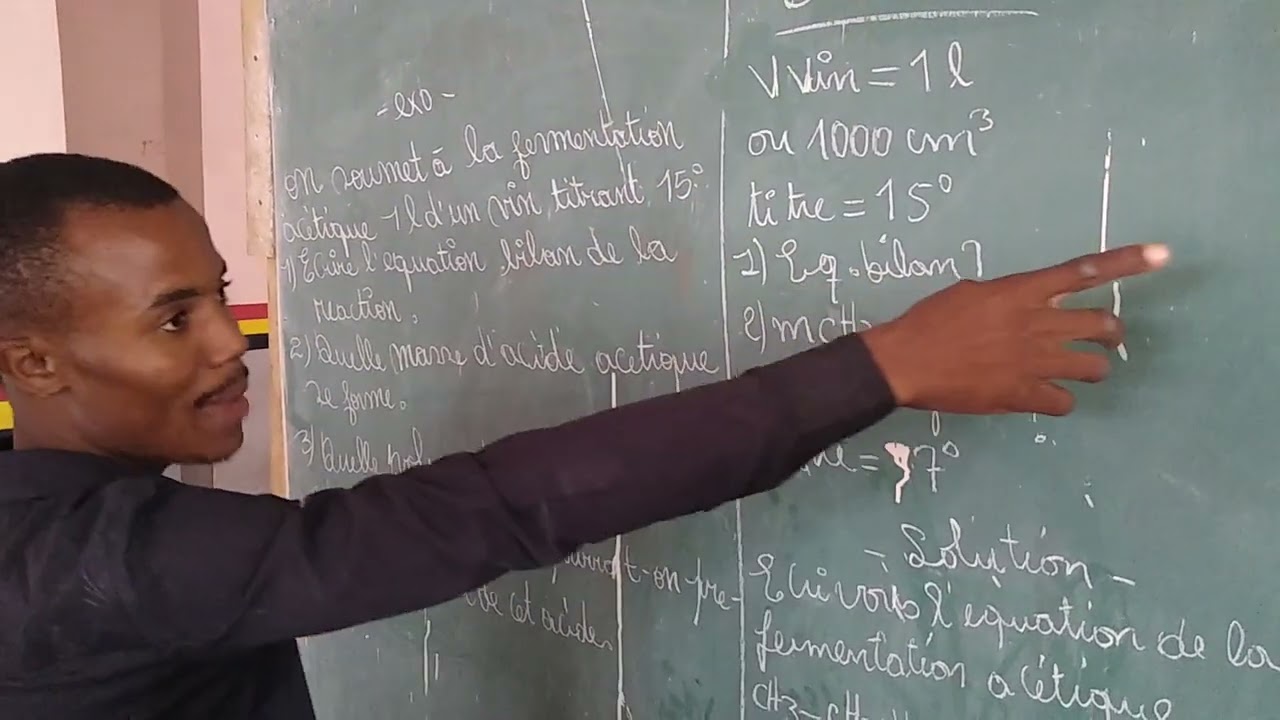 - exo -
on soumet à la fermentation
acétique 1l d'un vin titrant 15°.
1) Ecrire l'equation bilan de la
reaction.
2) Quelle masse d'acide acetique
se forme.
3) Quelle
-on pré-
cet acide.
V vin = 1 l
ou 1000 cm³
titre = 15°
1) Eq. bilan ?
2) mCH3
= 7°
- Solution -
Ecrivons l'équation de la
fermentation acétique
CH3-CH2